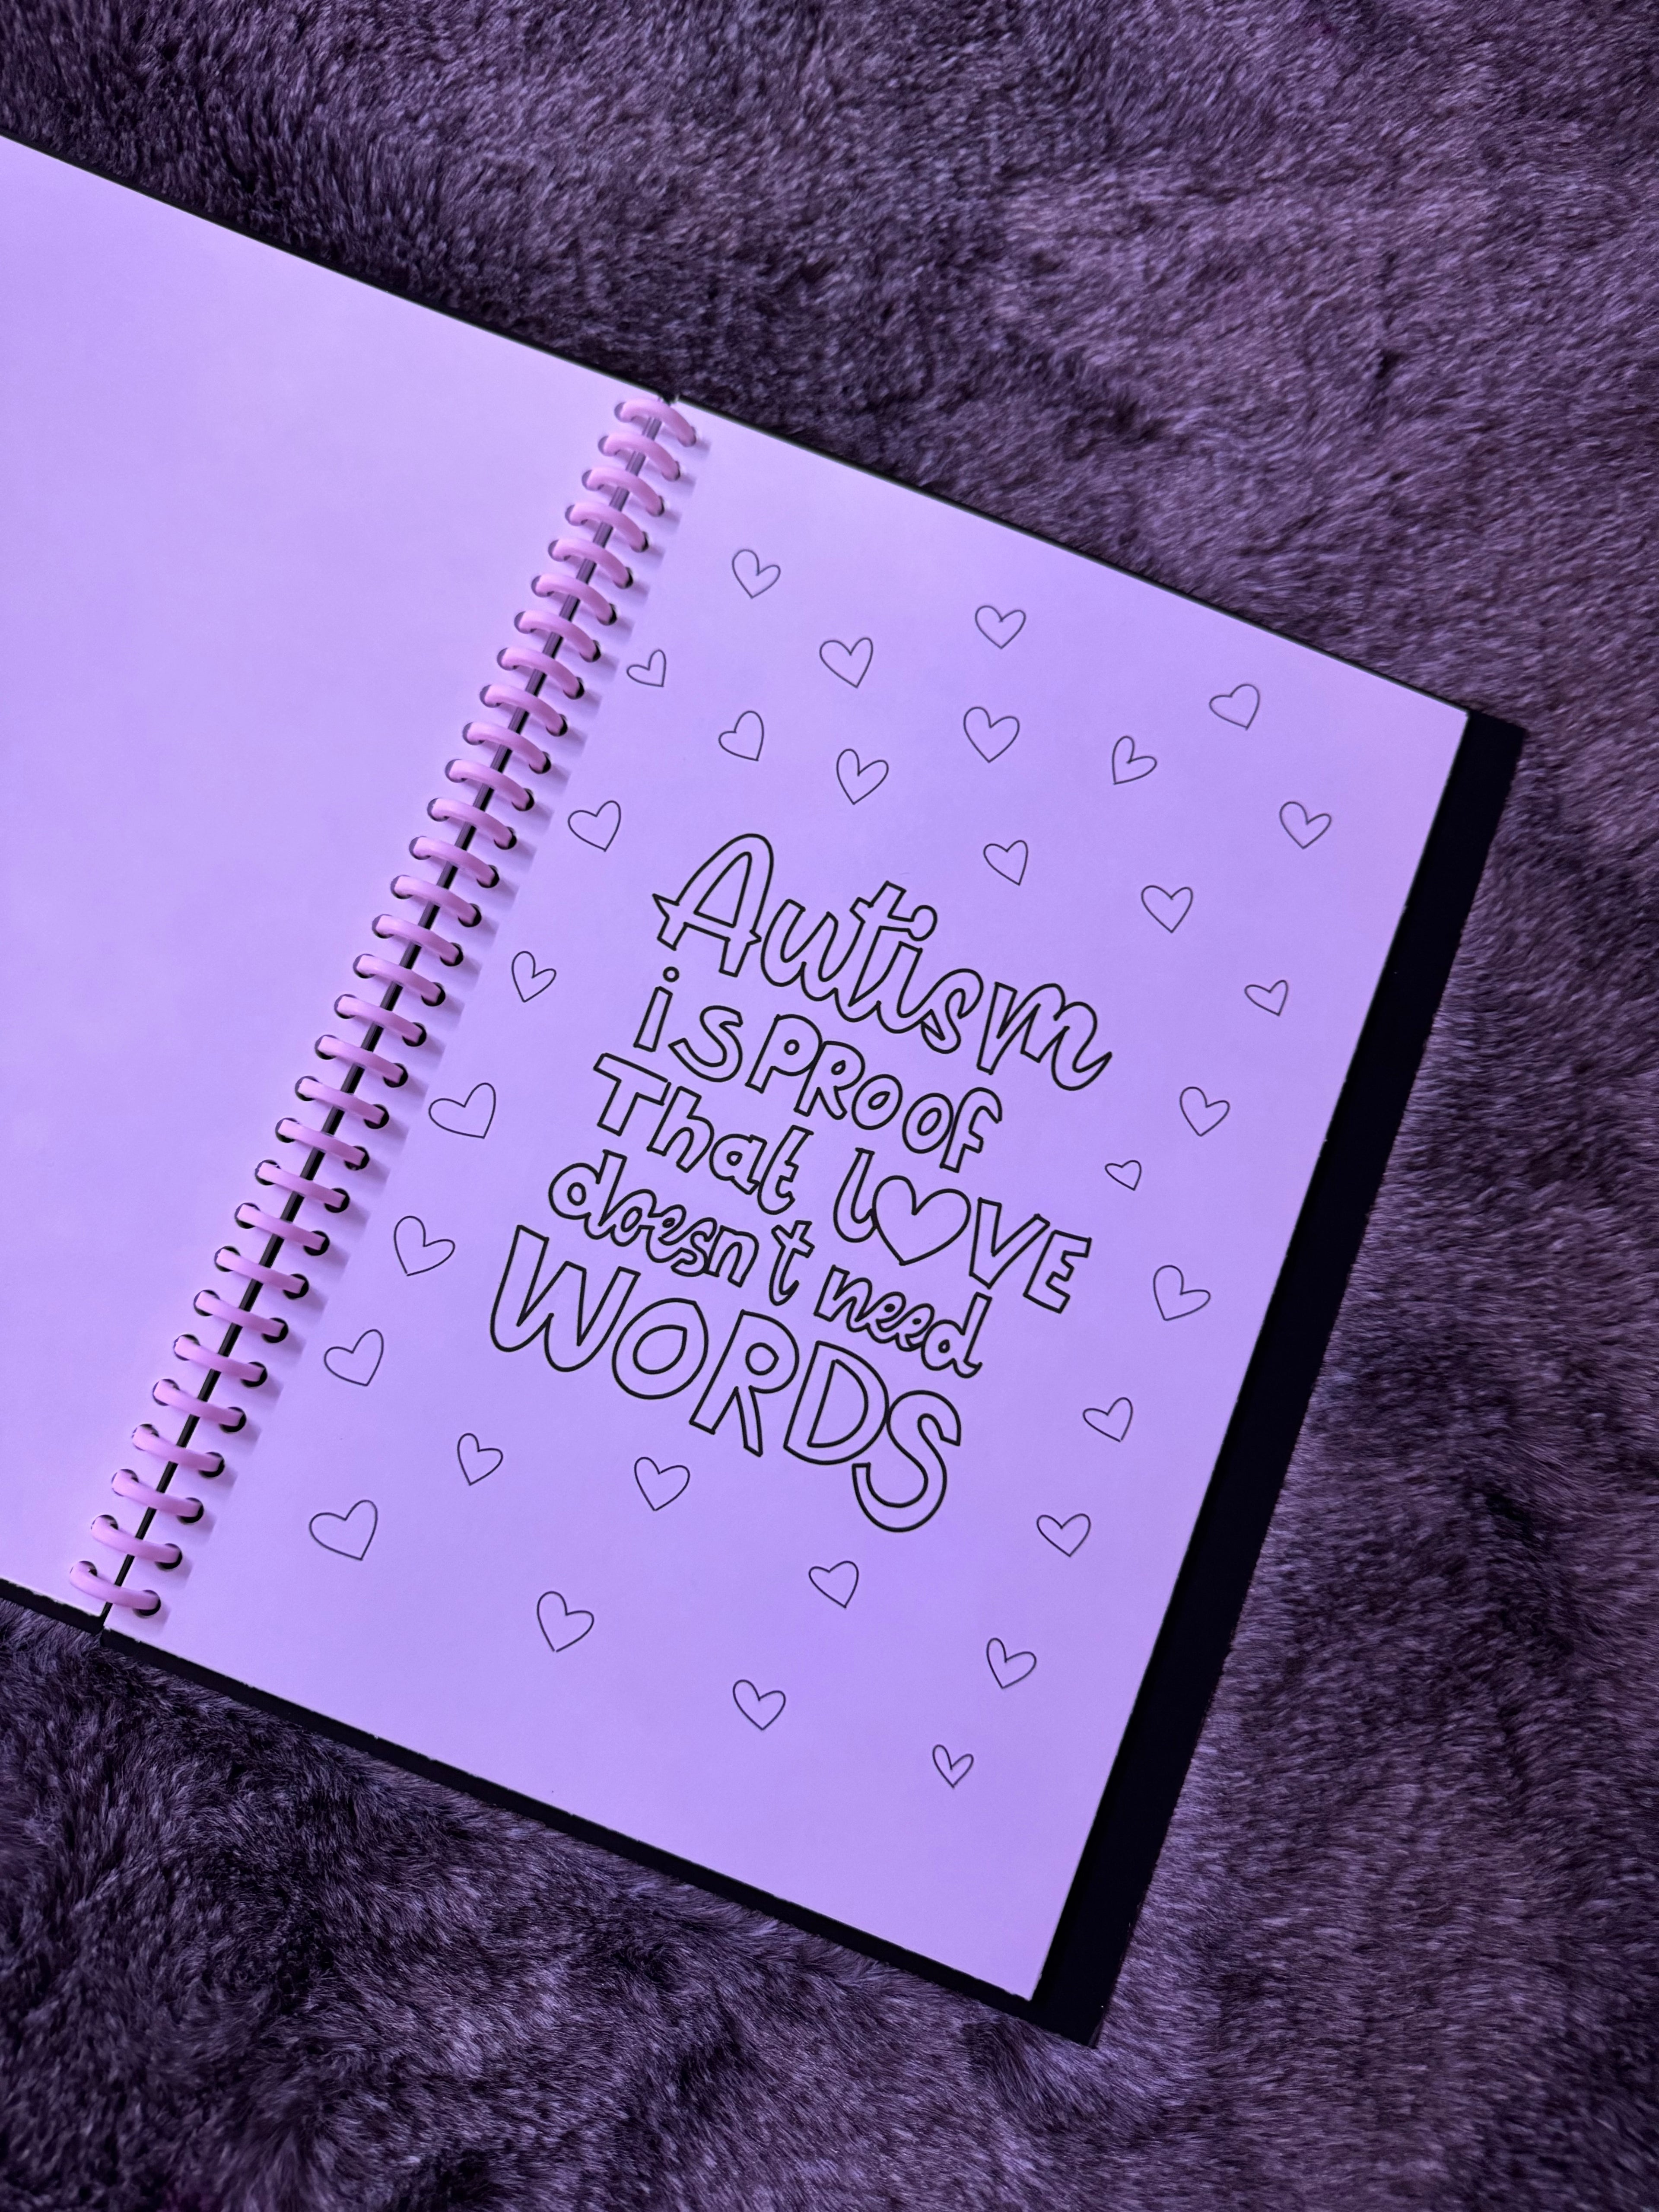 Autism
is PROOF
That LOVE
doesn't need
WORDS